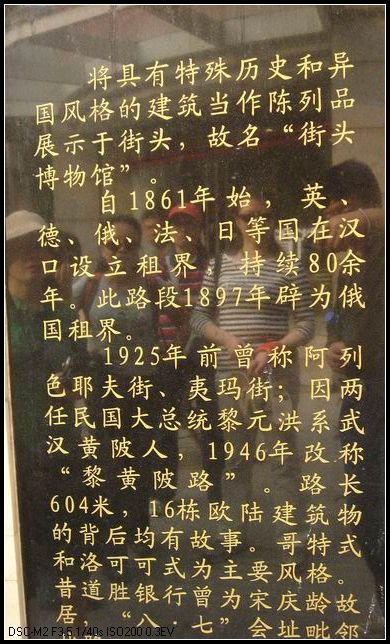 将具有特殊历史和异
国风格的建筑当作陈列品
展示于街头，故名“街头
博物馆”。
自1861年始，英、
德、俄、法、日等国在汉
口设立租界，持续80余
年。此路段1897年辟为俄
国租界。
1925年前曾称阿列
色耶夫街、夷玛街；因两
任民国大总统黎元洪系武
汉黄陂人，1946年改称
“黎黄陂路”。路长
604米，16栋欧陆建筑物
的背后均有故事。哥特式
和洛可可式为主要风格。
昔道胜银行曾为宋庆龄故
居，“八七”会址毗邻
DSC-M2 F3.5 1/40s ISO200 0.3EV